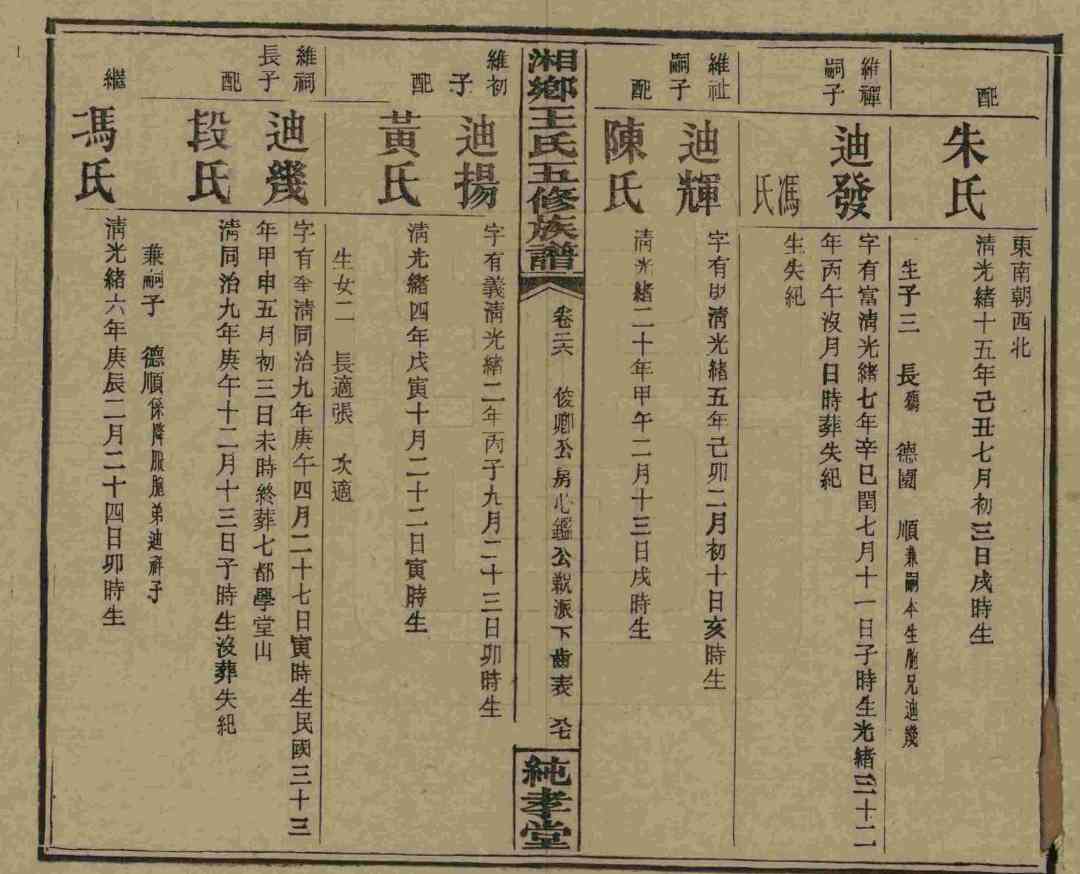 東南朝西北
配
朱氏
清光緒十五年己丑七月初三日戌時生
生子三 長殤 德園 順兼嗣本生胞兄迪幾
維禪嗣子
迪發
字有富清光緒七年辛巳閏七月十一日子時生光緒三十二
年丙午沒月日時葬失紀
馮氏
生失紀
維祉嗣子
迪輝
字有 清光緒五年己卯二月初十日亥時生
配
陳氏
清光緒二十年甲午二月十三日戌時生
湘鄉王氏五修族譜
卷二六 俊卿公房心鑑公 派下齒表
純孝堂
維初子
迪揚
字有義清光緒二年丙子九月二十三日卯時生
配
黃氏
清光緒四年戊寅十月二十二日寅時生
生女二 長適張 次適
維祠長子
迪幾
字有 清同治九年庚午四月二十七日寅時生民國三十三
年甲申五月初三日未時終葬七都學堂山
配
段氏
清同治九年庚午十二月十三日子時生沒葬失紀
兼嗣子 德順係降服胞弟迪 子
繼
馮氏
清光緒六年庚辰二月二十四日卯時生